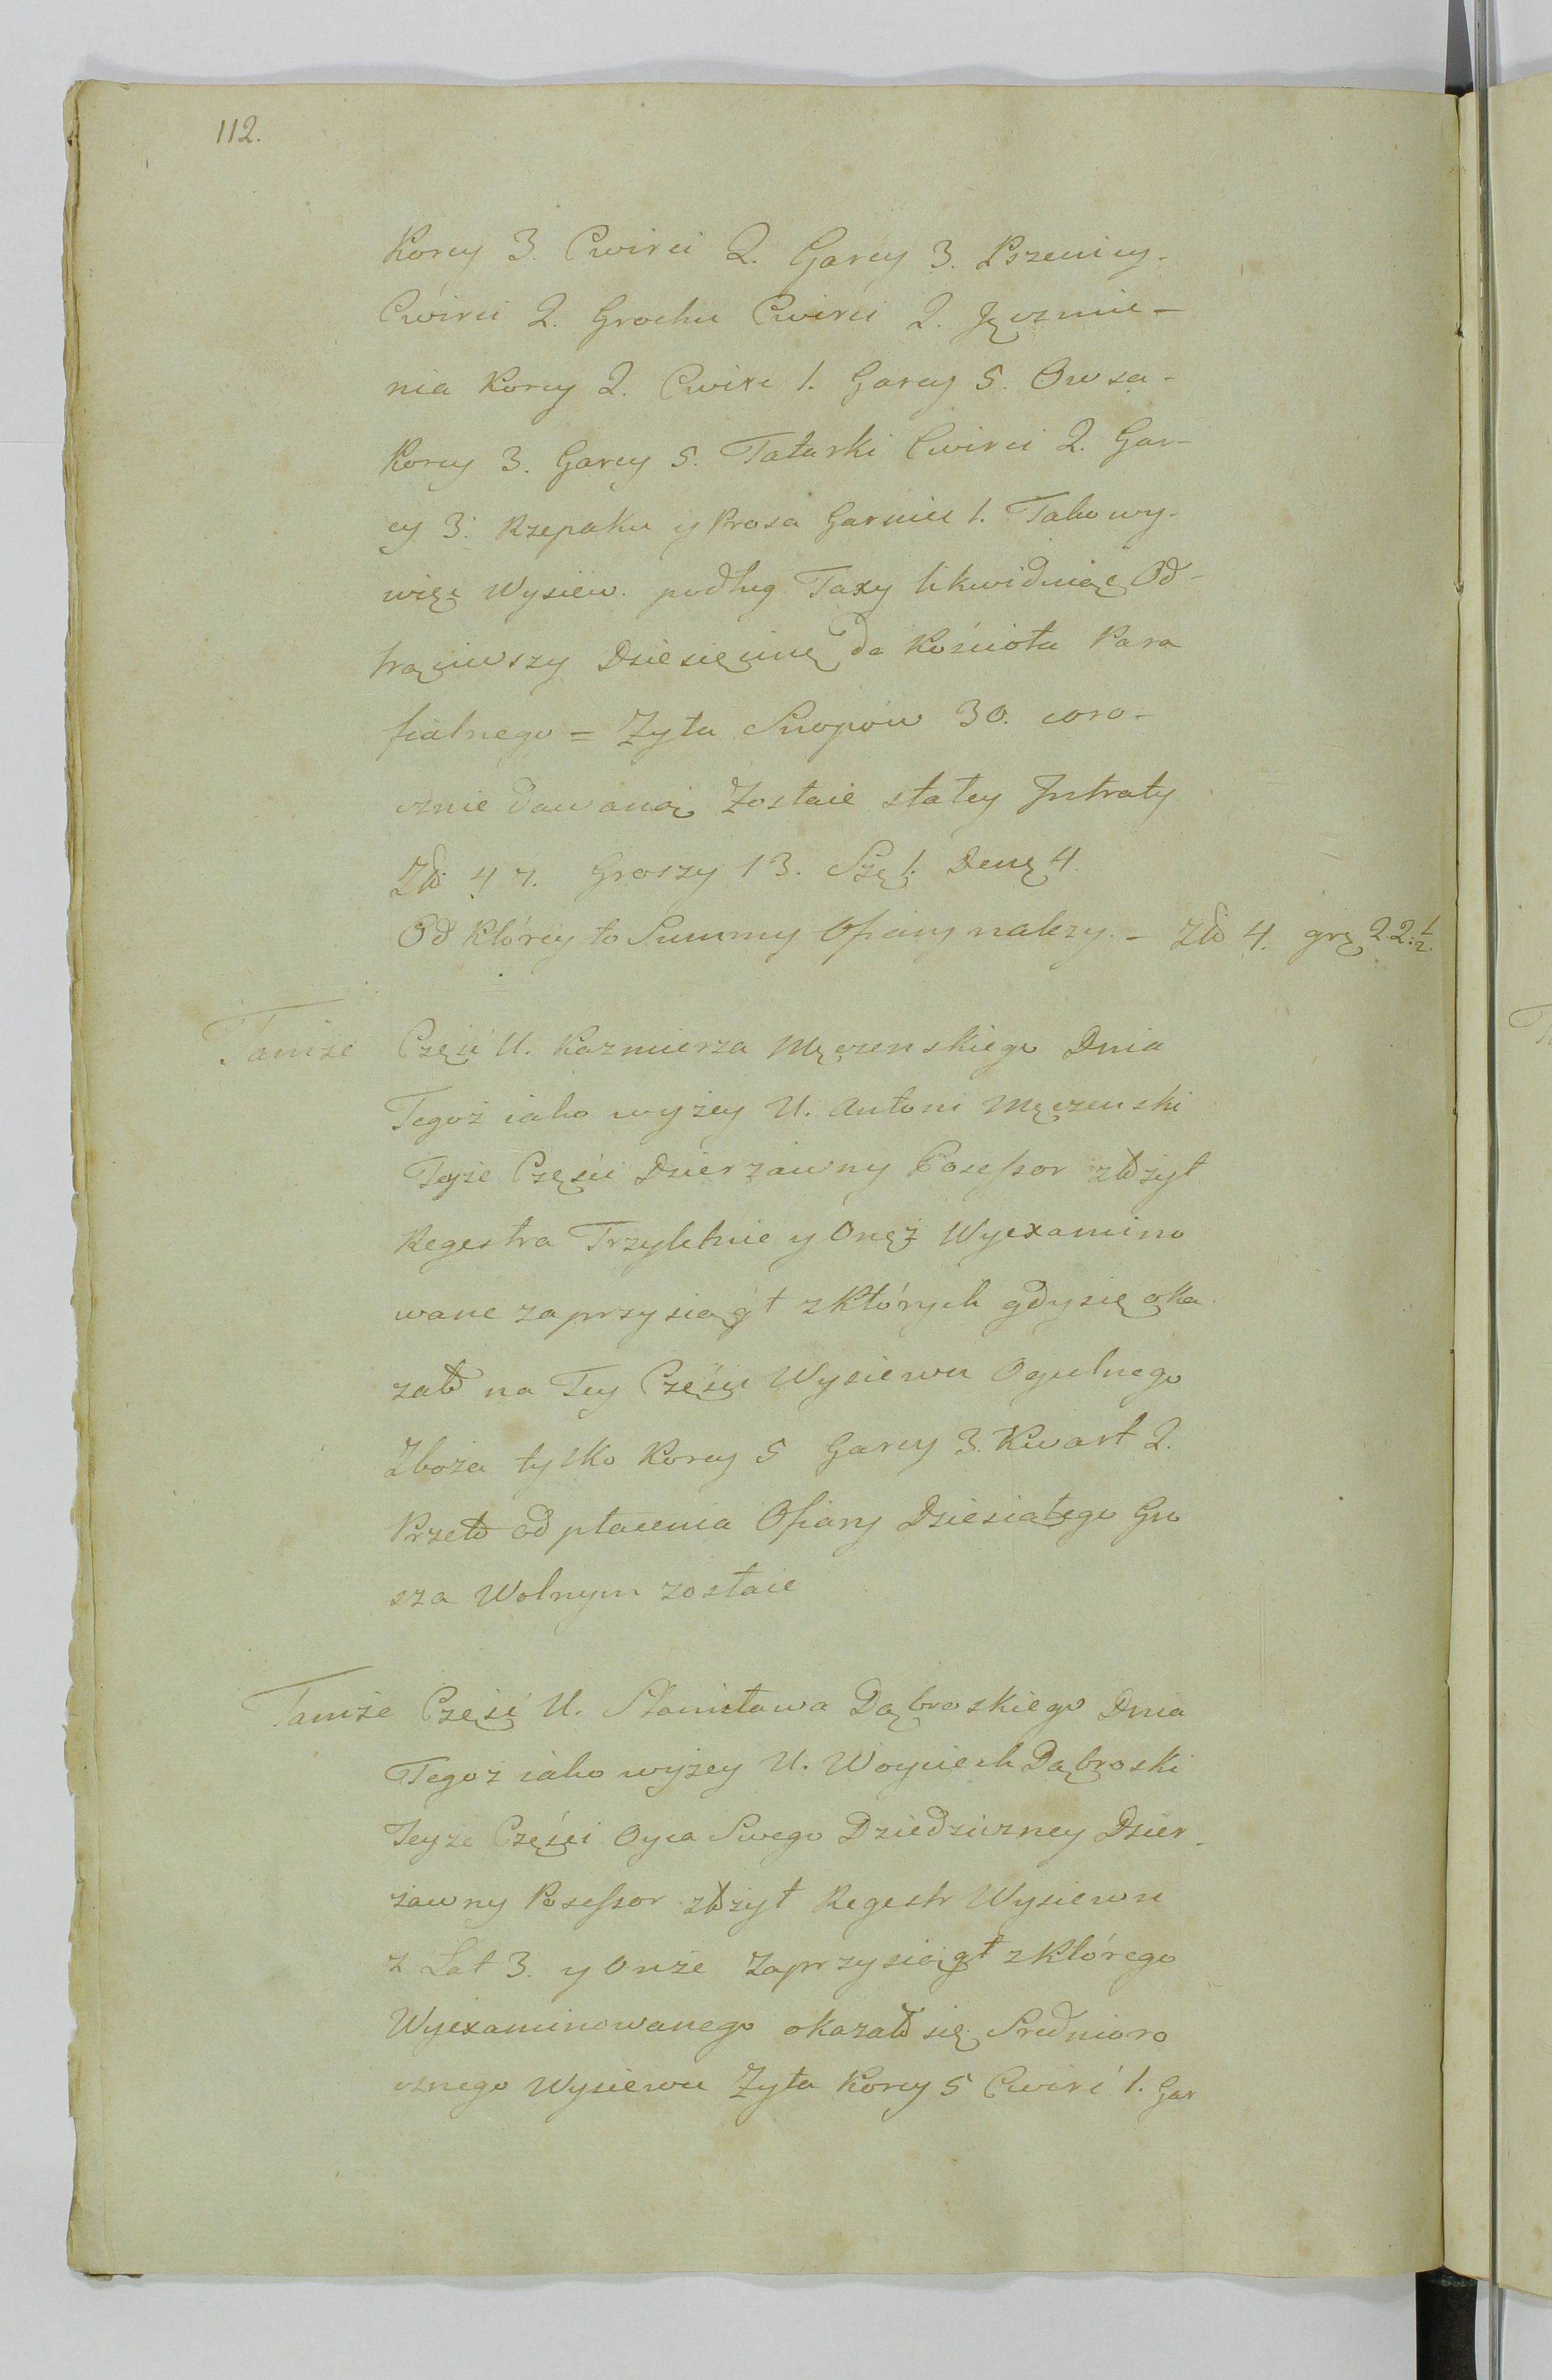 112.
Korcy 3. Cwirci 2. Garcy 3. Pszenicy.
Cwirci 2. Grochu Cwirci 2. Jęczmie-
nia Korcy 2. Cwirć 1. Garcy 5. Owsa-
Korcy 3. Garcy 5. Tatarki Cwirci 2. Gar-
cy 3. Rzepaku y Prosa Garniec 1. Takowy-
więc Wysiew. podług Taxy likwiduiąc Od-
trąciwszy Dziesięcinę do Kościoła Para
fialnego = Zyta Snopów 30. coro-
cznie dawaną Zostaie stałey Jntraty
Zło 47. Groszy 13. Szę 1. Denę 4.
Od którey to Summy Ofiary należy. - Zło 4. grę 22:½.
Tamże Część U. Kazmierza Męczenskiego Dnia
Tegoż iako wyżey U. Antoni Męczenski
Teyże Części Dzierżawny Possessor złożył
Regestra Trzyletnie y Oneż Wyexamino
wane zaprzysiągł z których gdy się oka
zało na Tey Części Wysiewu Ogulnego
Zboża tylko Korcy 5 Garcy 3. Kwart 2.
Przeto od płacenia Ofiary Dziesiątego Gro
sza Wolnym zostaie
Tamże Część U. Stanisława Dąbroskiego Dnia
Tegoż iako wyżey U. Woyciech Dąbroski
Teyże Części Oyca Swego Dziedziczney Dzier-
żawny Possessor złożył Regestr Wysiewu
z Lat 3. y Onże Zaprzysiągł z którego
Wyexaminowanego okazało się Srednioro
cznego Wysiewu Zyta Korcy 5 Cwirć 1. Gar